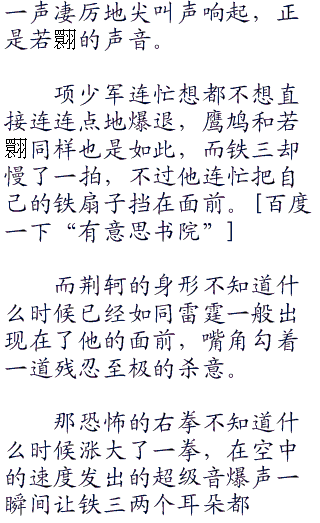 一声凄厉地尖叫声响起，正
是若翾的声音。
项少军连忙想都不想直
接连连点地爆退，鹰鸠和若
翾同样也是如此，而铁三却
慢了一拍，不过他连忙把自
己的铁扇子挡在面前。[百度
一下“有意思书院”]
而荆轲的身形不知道什
么时候已经如同雷霆一般出
现在了他的面前，嘴角勾着
一道残忍至极的杀意。
那恐怖的右拳不知道什
么时候涨大了一拳，在空中
的速度发出的超级音爆声一
瞬间让铁三两个耳朵都